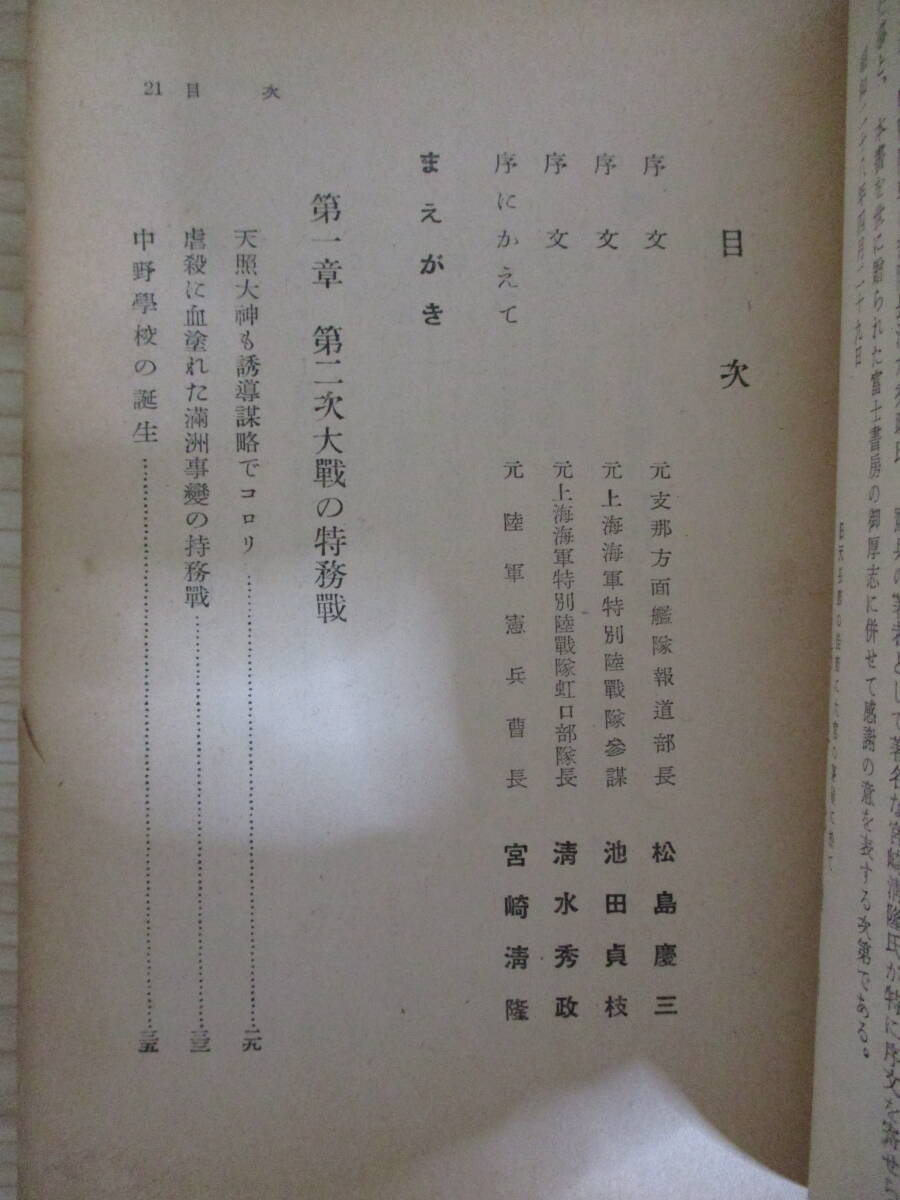 本書を世に贈られた富士書房の御厚志に併せて感謝の意を表する次第である。
21 目次
目次
序文 元支那方面艦隊報道部長 松島慶三
序文 元上海海軍特別陸戰隊參謀 池田貞枝
序文 元上海海軍特別陸戰隊虹口部隊長 淸水秀政
序にかえて 元陸軍憲兵曹長 宮崎淸隆
まえがき
第一章 第二次大戰の特務戰
天照大神も誘導謀略でコロリ……二九
虐殺に血塗れた滿洲事變の持務戰……三三
中野學校の誕生……三五